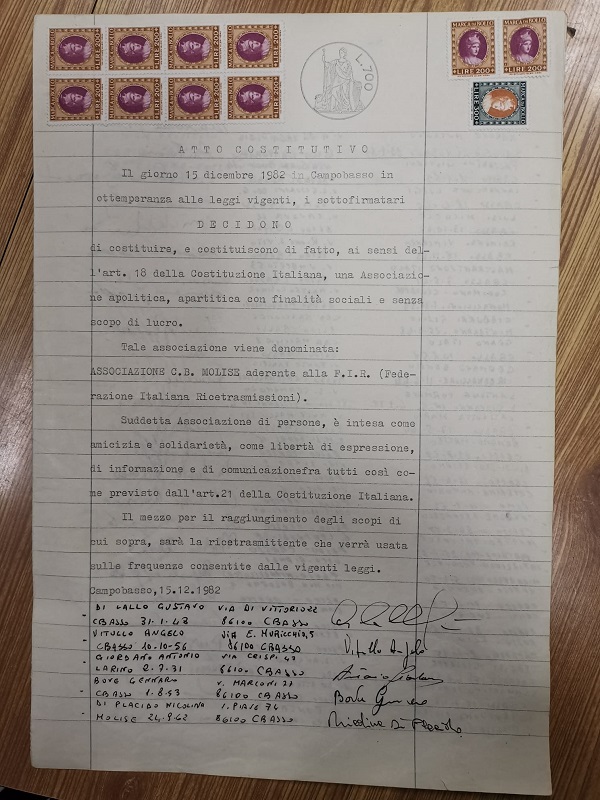 MARCA DA BOLLO MARCA DA BOLLO MARCA DA BOLLO MARCA DA BOLLO
LIRE 200 LIRE 200 LIRE 200 LIRE 200
L.700
MARCA DA BOLLO MARCA DA BOLLO
LIRE 200 LIRE 200
ATTO COSTITUTIVO
Il giorno 15 dicembre 1982 in Campobasso in
ottemperanza alle leggi vigenti, i sottofirmatari
DECIDONO
di costituire, e costituiscono di fatto, ai sensi del-
l'art. 18 della Costituzione Italiana, una Associazio-
ne apolitica, apartitica con finalità sociali e senza
scopo di lucro.
Tale associazione viene denominata:
ASSOCIAZIONE C.B. MOLISE aderente alla F.I.R. (Fede-
razione Italiana Ricetrasmissioni).
Suddetta Associazione di persone, è intesa come
amicizia e solidarietà, come libertà di espressione,
di informazione e di comunicazionefra tutti così co-
me previsto dall'art.21 della Costituzione Italiana.
Il mezzo per il raggiungimento degli scopi di
cui sopra, sarà la ricetrasmittente che verrà usata
sulle frequenze consentite dalle vigenti leggi.
Campobasso,15.12.1982
DI LALLO GUSTAVO VIA DI VITTORIO 22
CBASSO 31-1-43 86100 CBASSO
VITULLO ANGELO VIA E. MURICCHIO, 5
CBASSO 10-10-56 86100 CBASSO
Vitullo Angelo
GIORDANO ANTONIO VIA CRISPI 47
LARINO 2.7.31 86100 CBASSO
Antonio Giordano
BOVE GENNARO V. MARCONI
CBASSO 1.8.53 86100 CBASSO
Bove Gennaro
DI PLACIDO NICOLINA 76
MOLISE 24.9.62 86100 CBASSO
Nicolina Di Placido